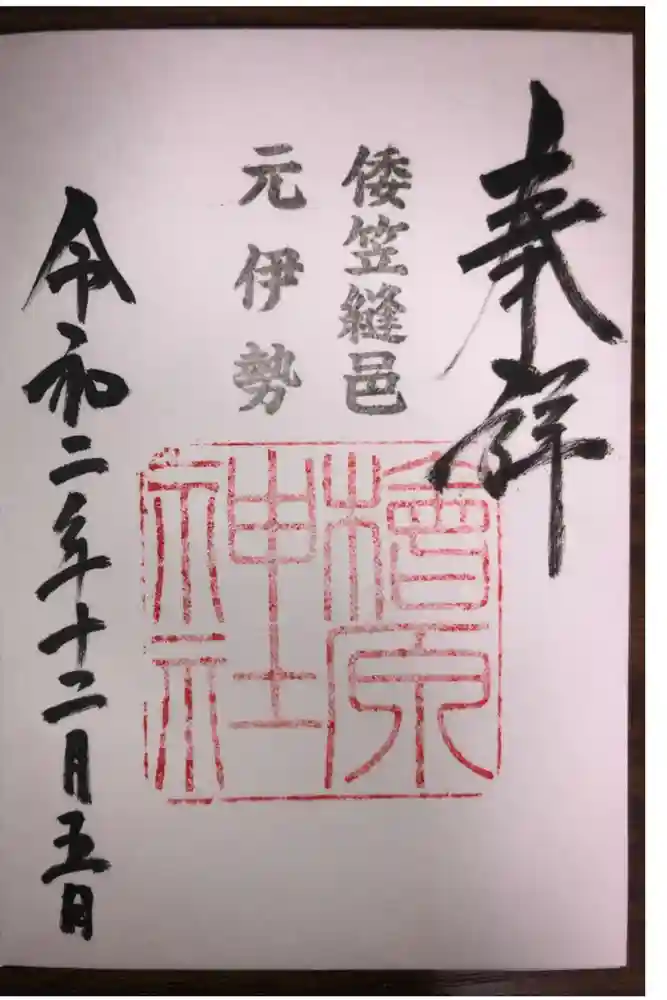 奉拝
倭笠縫邑
元伊勢
檜原神社
令和二年十二月五日